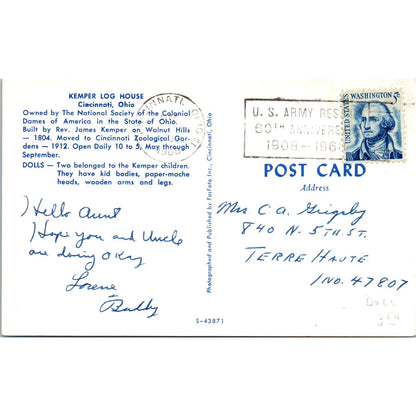 KEMPER LOG HOUSE
Cincinnati, Ohio
Owned by The National Society of the Colonial
Dames of America in the State of Ohio.
Built by Rev. James Kemper on Walnut Hills
- 1804. Moved to Cincinnati Zoological Gar-
dens - 1912. Open Daily 10 to 5, May through
September.
DOLLS - Two belonged to the Kemper children.
They have kid bodies, paper-mache
heads, wooden arms and legs.
Hello Aunt
I Hope you and Uncle
are doing OKay
Lorene
+
Bobby
Photographed and Published by FarFoto Inc., Cincinnati, Ohio
S-43871
CINNATI, OHIO
U. S. ARMY RES
60TH ANNIVERS
1908-1968
UNITED STATES
WASHINGTON 5c
POST CARD
Address
Mrs C. A. Grigsby
840 N. 5TH ST.
TERRE HAUTE
IND. 47807